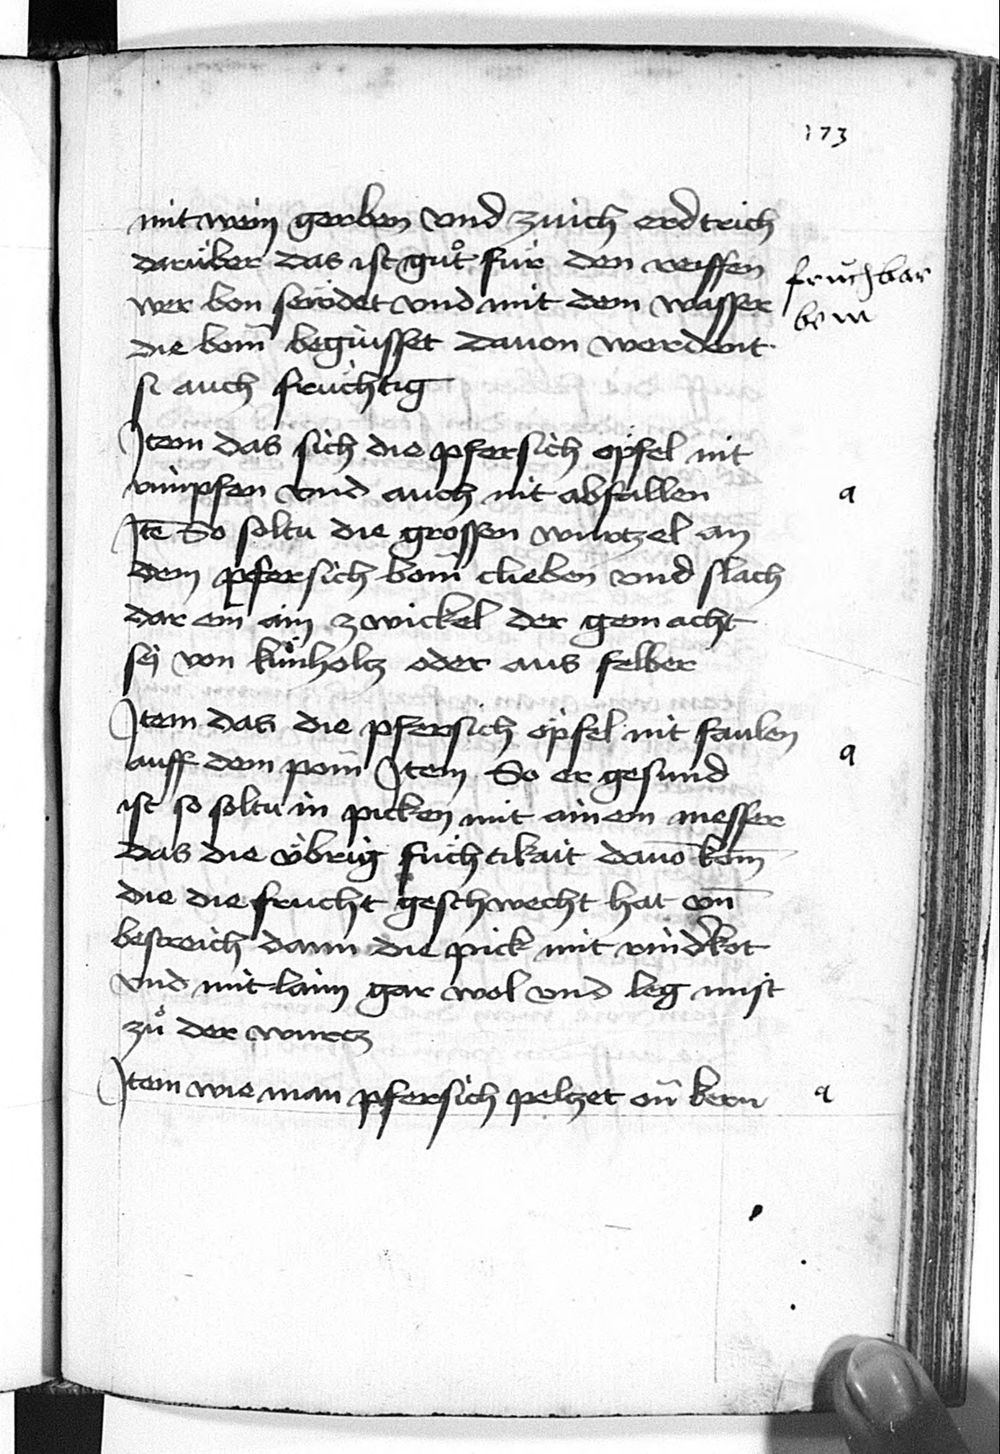 173
mit wein gerben vnd zuich erdtrich
darüber das ist guͦt für den reiffen
fruchbar
bem
wer bon seudet vnd mit dem wasser
die bom̄ begüisset dauon werdent
si auch früchtig
Item das sich die pfersich öpfel nit
rimpfen vnd auch nit abfallen
a
Itē So soltu die grossen wurtzel an
dem pfersich bom̄ clieben vnd slach
dar ein ain zwickel der gemacht
sej von kuͦnholtz oder aus felber
Item das die pfersich öpfel nit faulen
a
auff dem pom̄ Item So er gesund
ist so soltu in picken mit ainem messer
das die übrig füchtikait dauō kom̄
die die frucht geschwecht hat vn̄
bestreich dann die pick mit rindkot
vnd mit laim gar wol vnd leg mist
zuͦ der wurtz
Item wie man pfersich peltzet on̄ kern
a